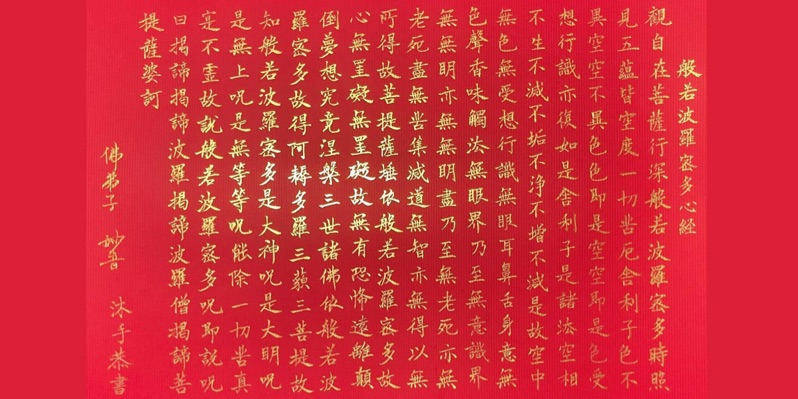 般若波羅密多心経
觀自在菩薩行深般若波羅密多時照
見五蘊皆空度一切苦厄舍利子色不
異空空不異色色即是空空即是色受
想行識亦復如是舍利子是諸法空相
不生不滅不垢不净不增不減是故空中
無色無受想行識無眼耳鼻舌身意無
色聲香味觸法無眼界乃至無意識界
無無明亦無無明盡乃至無老死亦無
老死盡無苦集滅道無智亦無得以無
所得故菩提薩埵依般若波羅密多故
心無罣礙無罣礙故無有恐怖遠離顛
倒夢想究竟涅槃三世諸佛依般若波
羅密多故得阿耨多羅三藐三菩提故
知般若波羅密多是大神呪是大明呪
是無上呪是無等等呪能除一切苦真
寔不虛故說般若波羅密多呪即說呪
曰揭諦揭諦波羅揭諦波羅僧揭諦菩
提薩婆訶
佛弟子 妙 沐手恭書